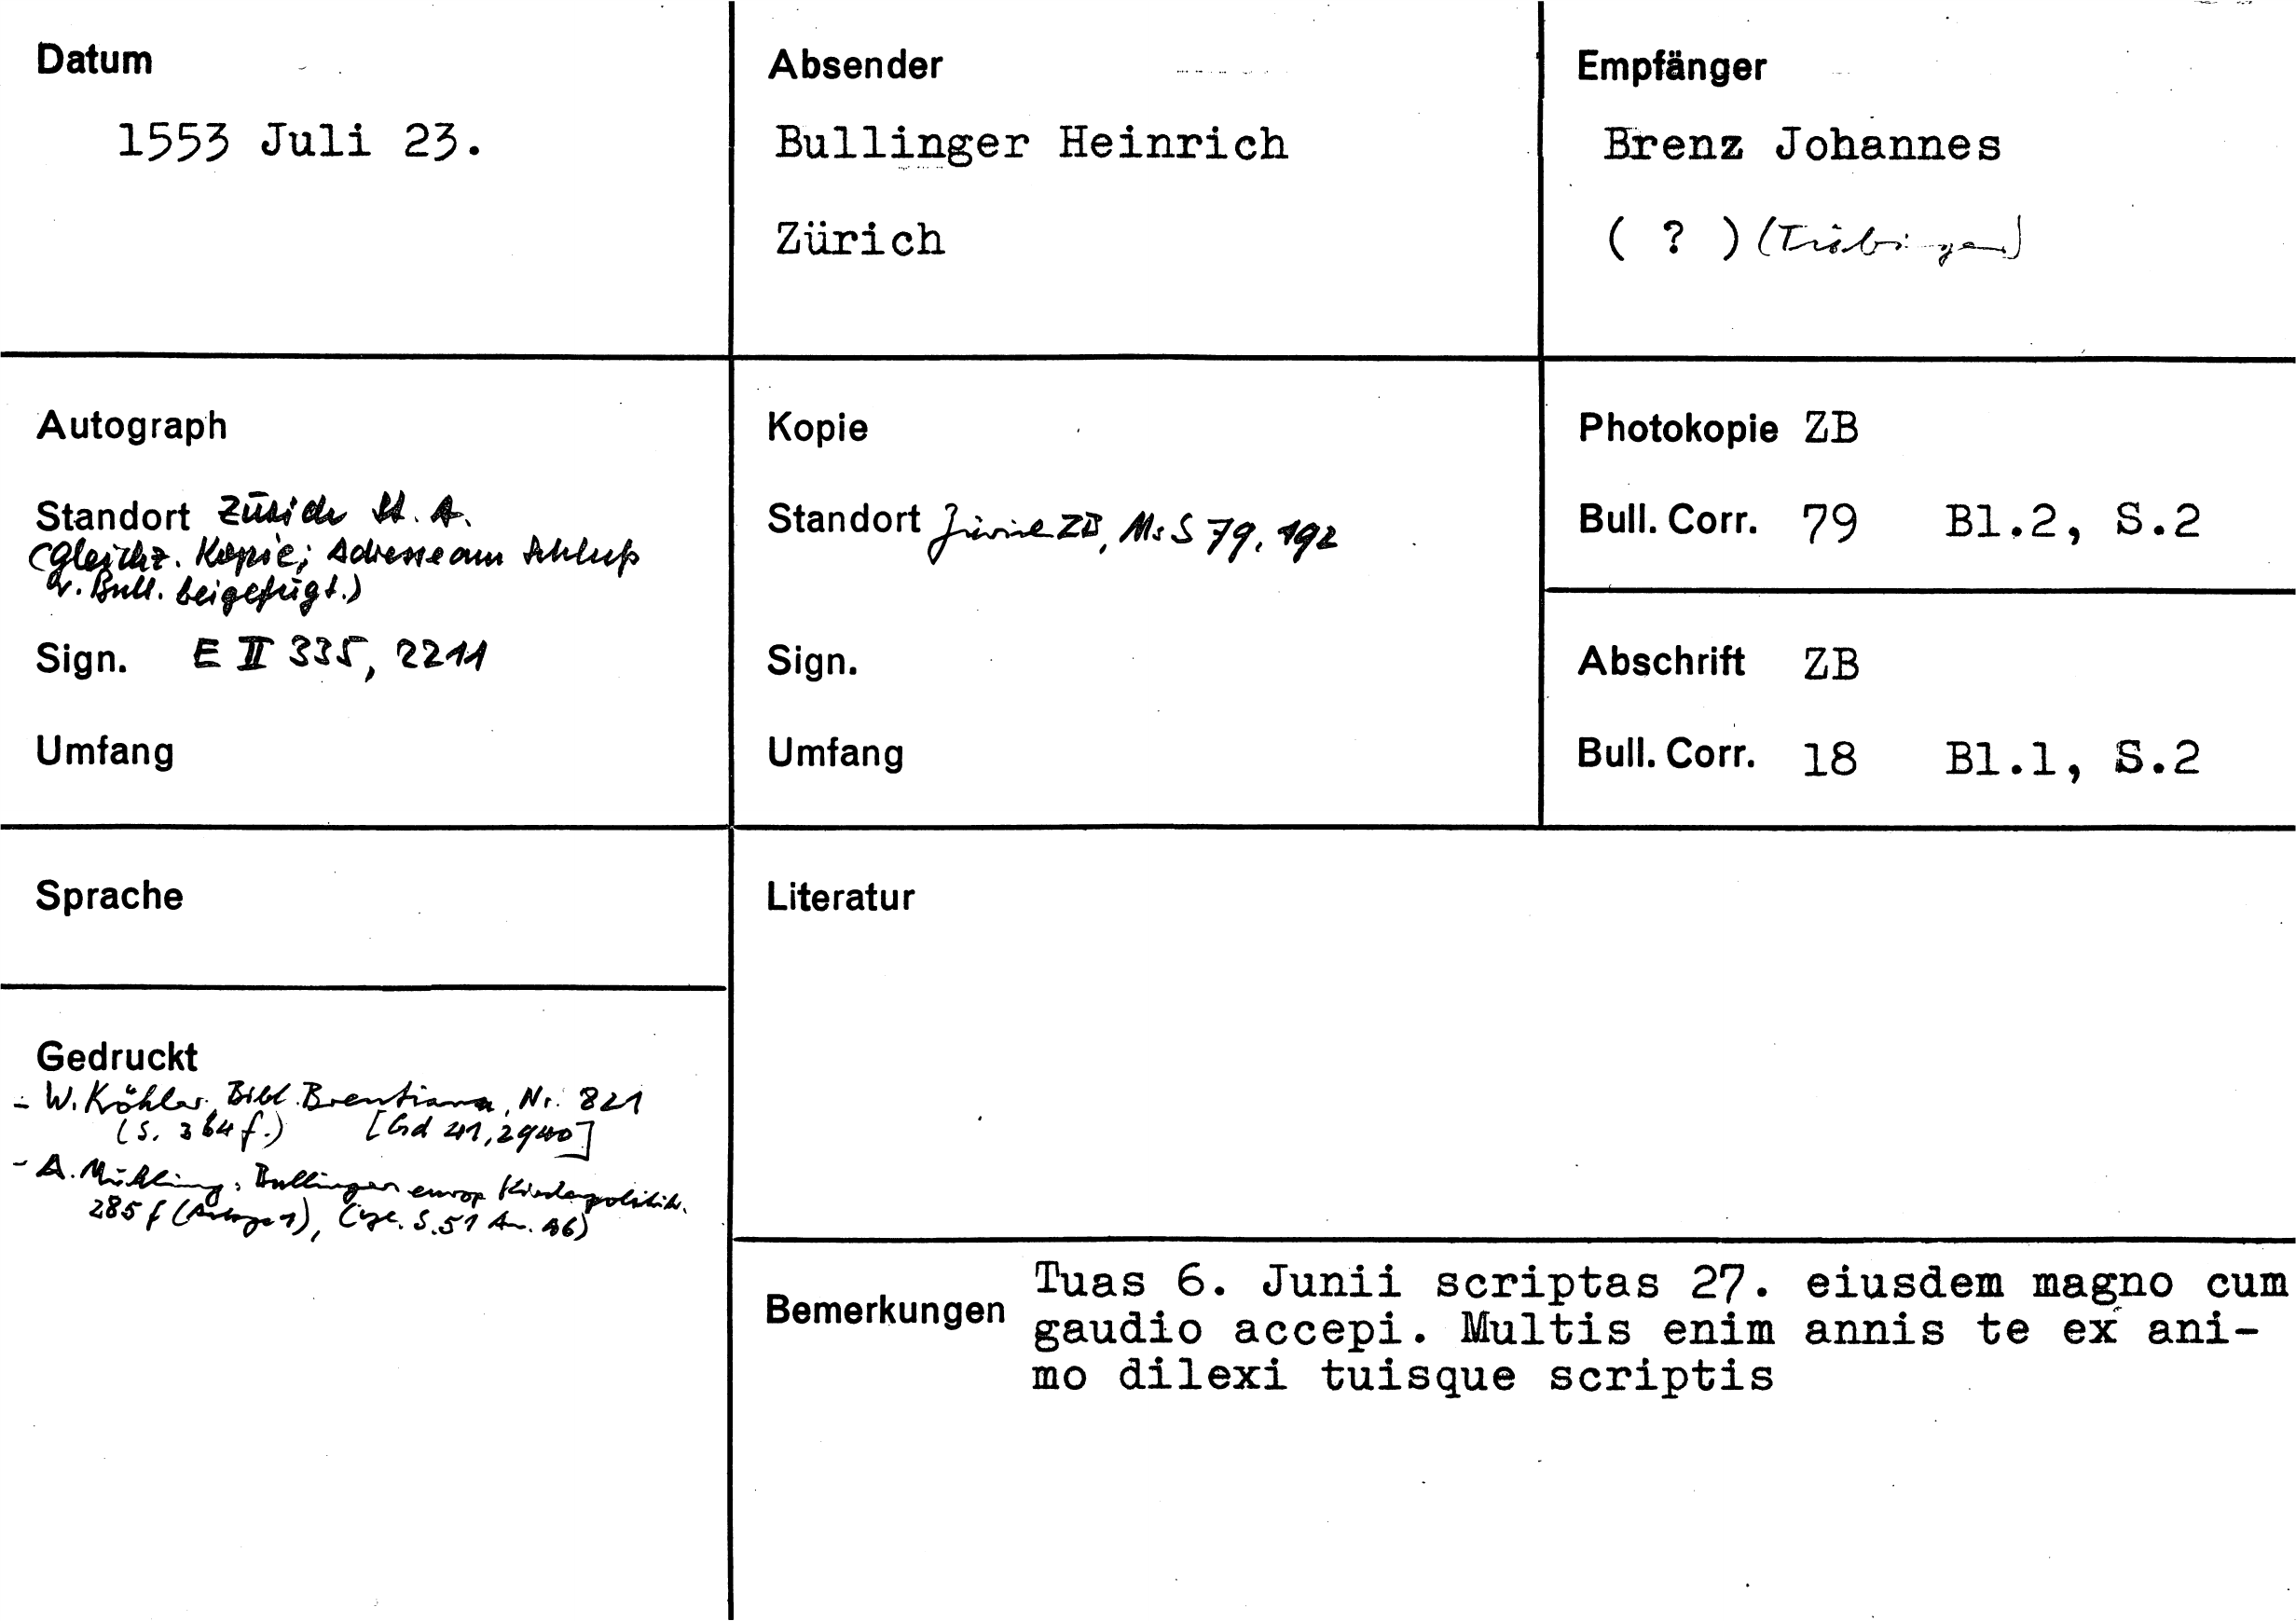 Datum
1553 Juli 23.
Absender
Bullinger Heinrich
Zürich
Empfänger
Brenz Johannes
( ? ) (Tübingen)
Autograph
Standort Zürich St. A.
(Gleichz. Kopie; Adresse am Schluß
v. Bull. beigefügt.)
Sign. E II 335, 2211
Umfang
Kopie
Standort Zürich ZB, Ms S 79, 192
Sign.
Umfang
Photokopie ZB
Bull. Corr. 79 Bl.2, S.2
Abschrift ZB
Bull. Corr. 18 Bl.1, S.2
Sprache
Gedruckt
- W. Köhler, Bibl. Brentiana, Nr. 821
(S. 364 f.)
- A. Mühling, Bullingers europ Kirchenpolitik.
285 f (Anlage 1), (vgl. S. 51 An.
Literatur
Bemerkungen
Tuas 6. Junii scriptas 27. eiusdem magno cum
gaudio accepi. Multis enim annis te ex ani-
mo dilexi tuisque scriptis